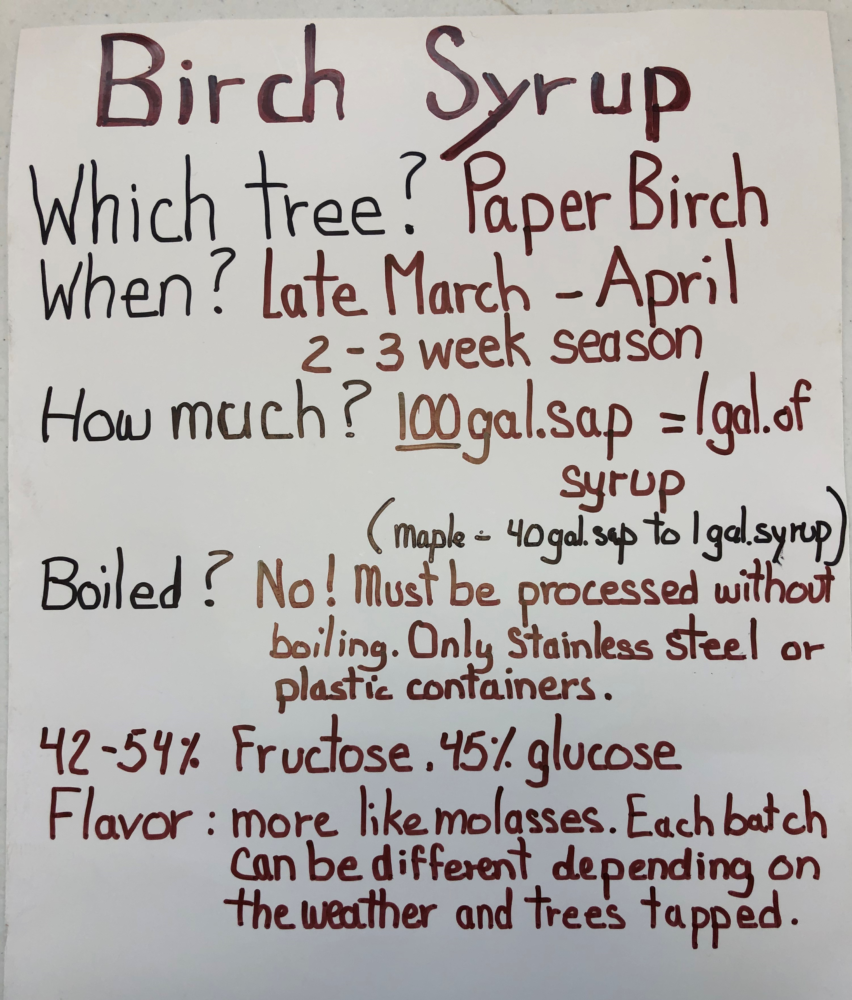 Birch Syrup
Which tree? Paper Birch
When? Late March - April
2-3 week season
How much? 100 gal. sap = 1 gal. of
syrup
(maple - 40 gal. sap to 1 gal. syrup)
Boiled? No! Must be processed without
boiling. Only Stainless steel or
plastic containers.
42-54% Fructose. 45% glucose
Flavor: more like molasses. Each batch
Can be different depending on
the weather and trees tapped.